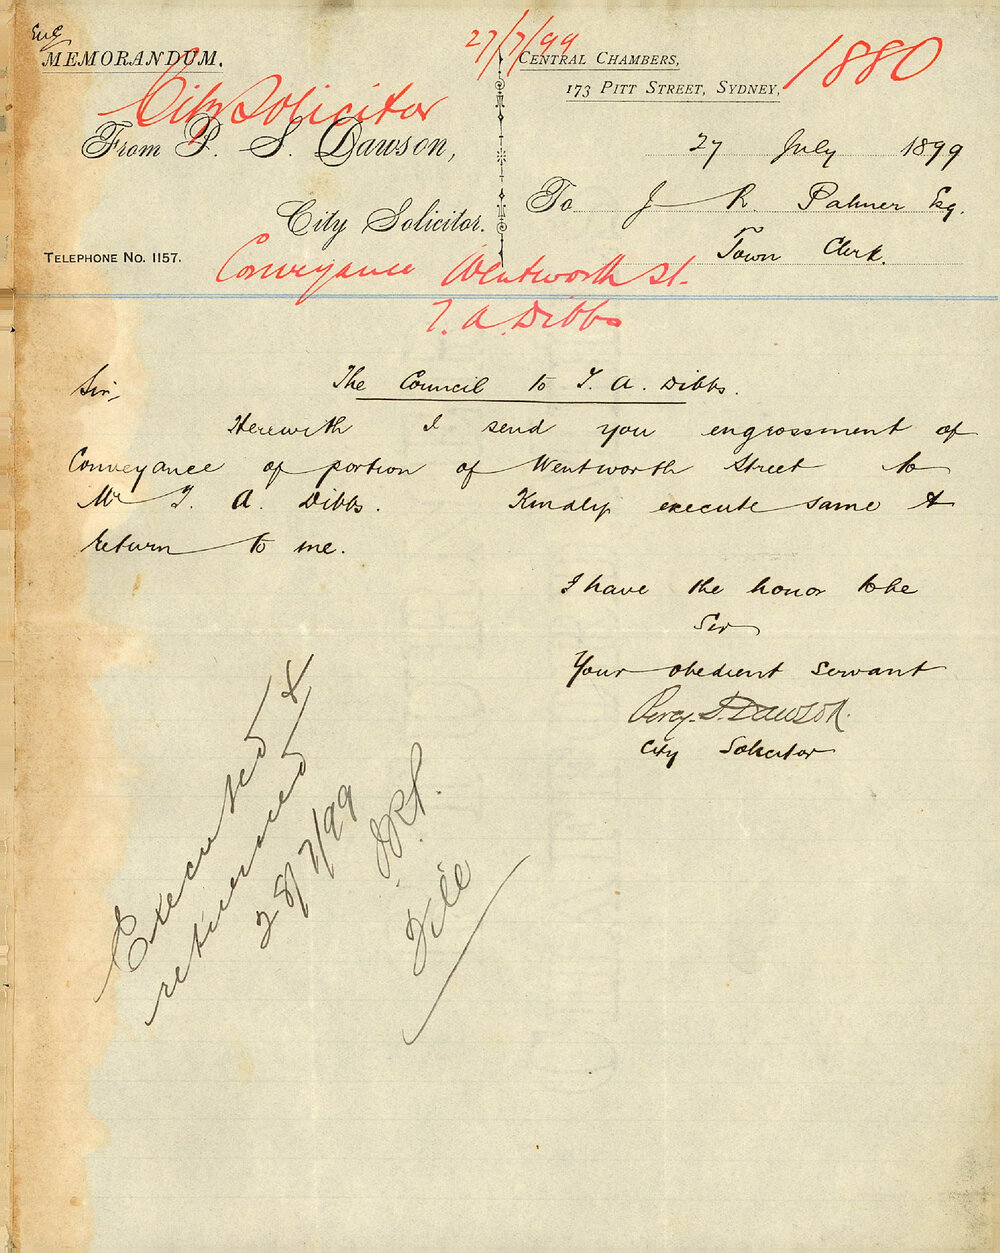 Enc
27/7/99
MEMORANDUM.
CENTRAL CHAMBERS,
1880
173 PITT STREET, SYDNEY,
City Solicitor
From P. S. Dawson,
27 July 1899
City Solicitor.
To J R Palmer Esq.
TELEPHONE No. 1157.
Town Clerk.
Conveyance Wentworth St.
T. A. Dibbs
Sir,
The Council to T. A. Dibbs.
Herewith I send you engrossment of
Conveyance of portion of Wentworth Street to
Mr T. A. Dibbs. Kindly execute same &
return to me.
I have the honor to be
Sir
Your obedient servant
Percy S. Dawson.
City Solicitor
Executed &
returned
28/7/99
JRP.
File